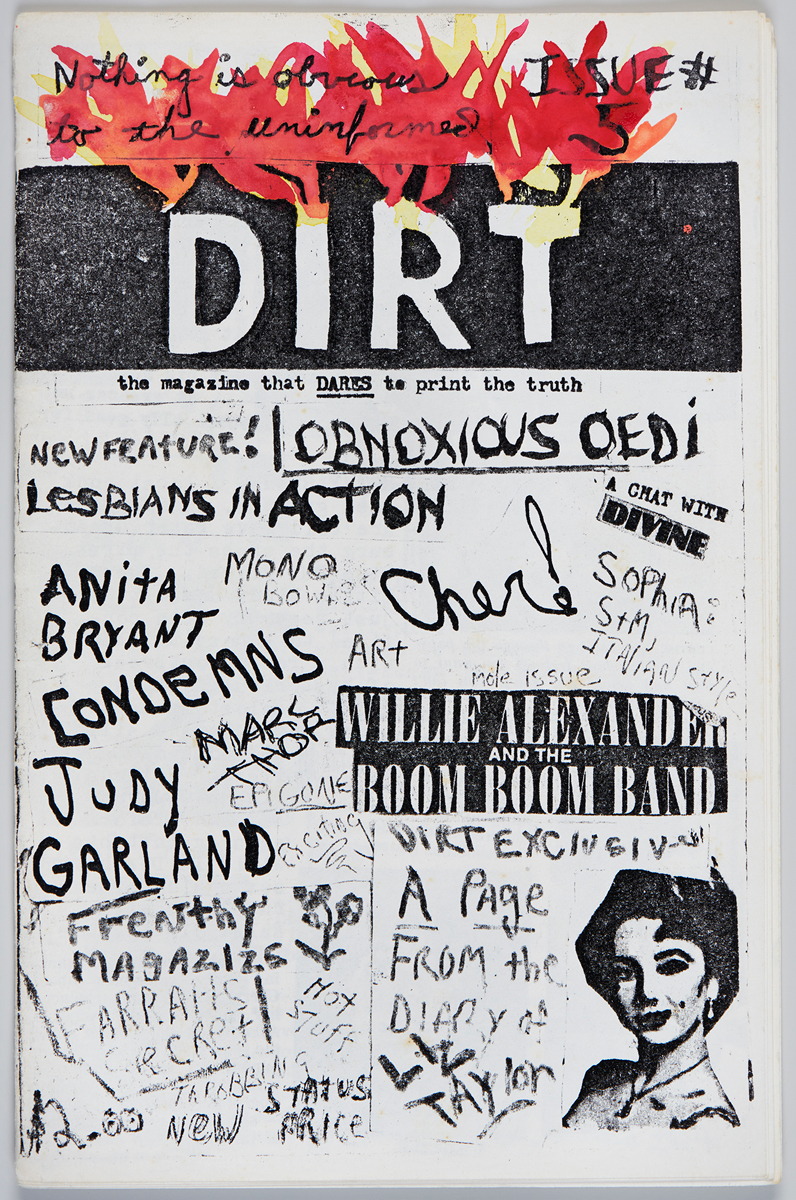 Nothing is obvious
to the uninformed
ISSUE #
5
DIRT
the magazine that DARES to print the truth
NEW FEATURE!
OBNOXIOUS OEDI
LESBIANS IN ACTION
A CHAT WITH
DIVINE
ANitA
BRYANT
CONDEMNS
JUDY
GARLAND
MONO
Cher!
SOPHIA:
S+M,
ITALIAN STYLE
ARt
mole issue
MARC
THOR
EPIGONE
EXCITING
WILLIE ALEXANDER
AND THE
BOOM BOOM BAND
DIRT EXCLUSIVE
A PAge
FROM the
DIARY of
LIZ
TAYlor
FFENthY
MAGAZIZE
FARRAHS
SECRET
HOT
STUFF
THROBBING
STATUS
$2.00 NEW PRICE